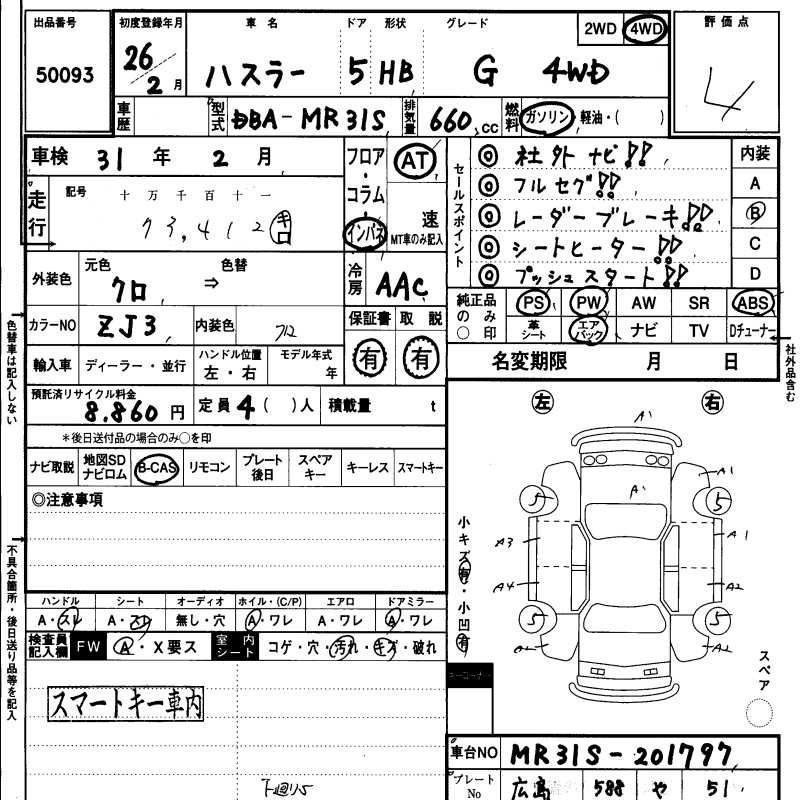 出品番号
50093
初度登録年月
26
2月
車名
ハスラー
ドア
5
形状
HB
グレード
G 4WD
2WD 4WD
評価点
4
車歴
型式
DBA-MR31S
排気量
660 cc
燃料
ガソリン・軽油・( )
車検 31年 2月
フロア・コラム・インパネ
AT
速
MT車のみ記入
走行
記号 十万千百十一
73,412
キロ
セールスポイント
◎社外ナビ!!
◎フルセグ!!
◎レーダーブレーキ!!
◎シートヒーター!!
◎プッシュスタート!!
内装
A
B
C
D
外装色
元色 ⇒ 色替
クロ
冷房
AAC
カラーNO
ZJ3
内装色
保証書
有
取説
有
純正品の○印
PS PW AW SR ABS
革シート エアバック ナビ TV Dチューナー
輸入車
ディーラー・並行
ハンドル位置
左・右
モデル年式
年
名変期限 月 日
預託済リサイクル料金
8,860円
定員4( )人
積載量 t
*後日送付品の場合のみ○を印
ナビ取説
地図SDナビロム
B-CAS
リモコン
プレート後日
スペアキー
キーレス
スマートキー
◎注意事項
色替車は記入しない
不具合箇所・後日送り品等を記入
社外品含む
左 右
A'
A1
A'
5 5
A3 A1
A4 A2
5 5
A2
小キズ有・小凹有
スペア
ハンドル
A・スレ
シート
A・スレ
オーディオ
無し・穴
ホイル・(C/P)
A・ワレ
エアロ
A・ワレ
ドアミラー
A・ワレ
検査員記入欄
FW
A・X要ス
室内シート
コゲ・穴・汚れ・キズ・破れ
スマートキー車内
車台NO
MR31S-201797
プレートNo
広島 588 や 51